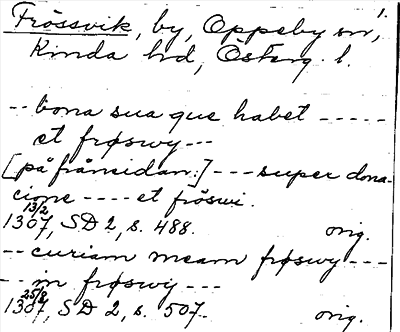 1.
Frössvik, by, Oppeby sn,
Kinda hd, Österg. l.
-- bona sua que habet -----
et frøswy ---
[på frånsidan:] --- super dona-
cione ---- et fröswi.
13/2
1307, SD 2, s. 488. orig.
-- curiam meam frøswy ---
-- in frøswy ---
25/8
1307, SD 2, s. 507. orig.